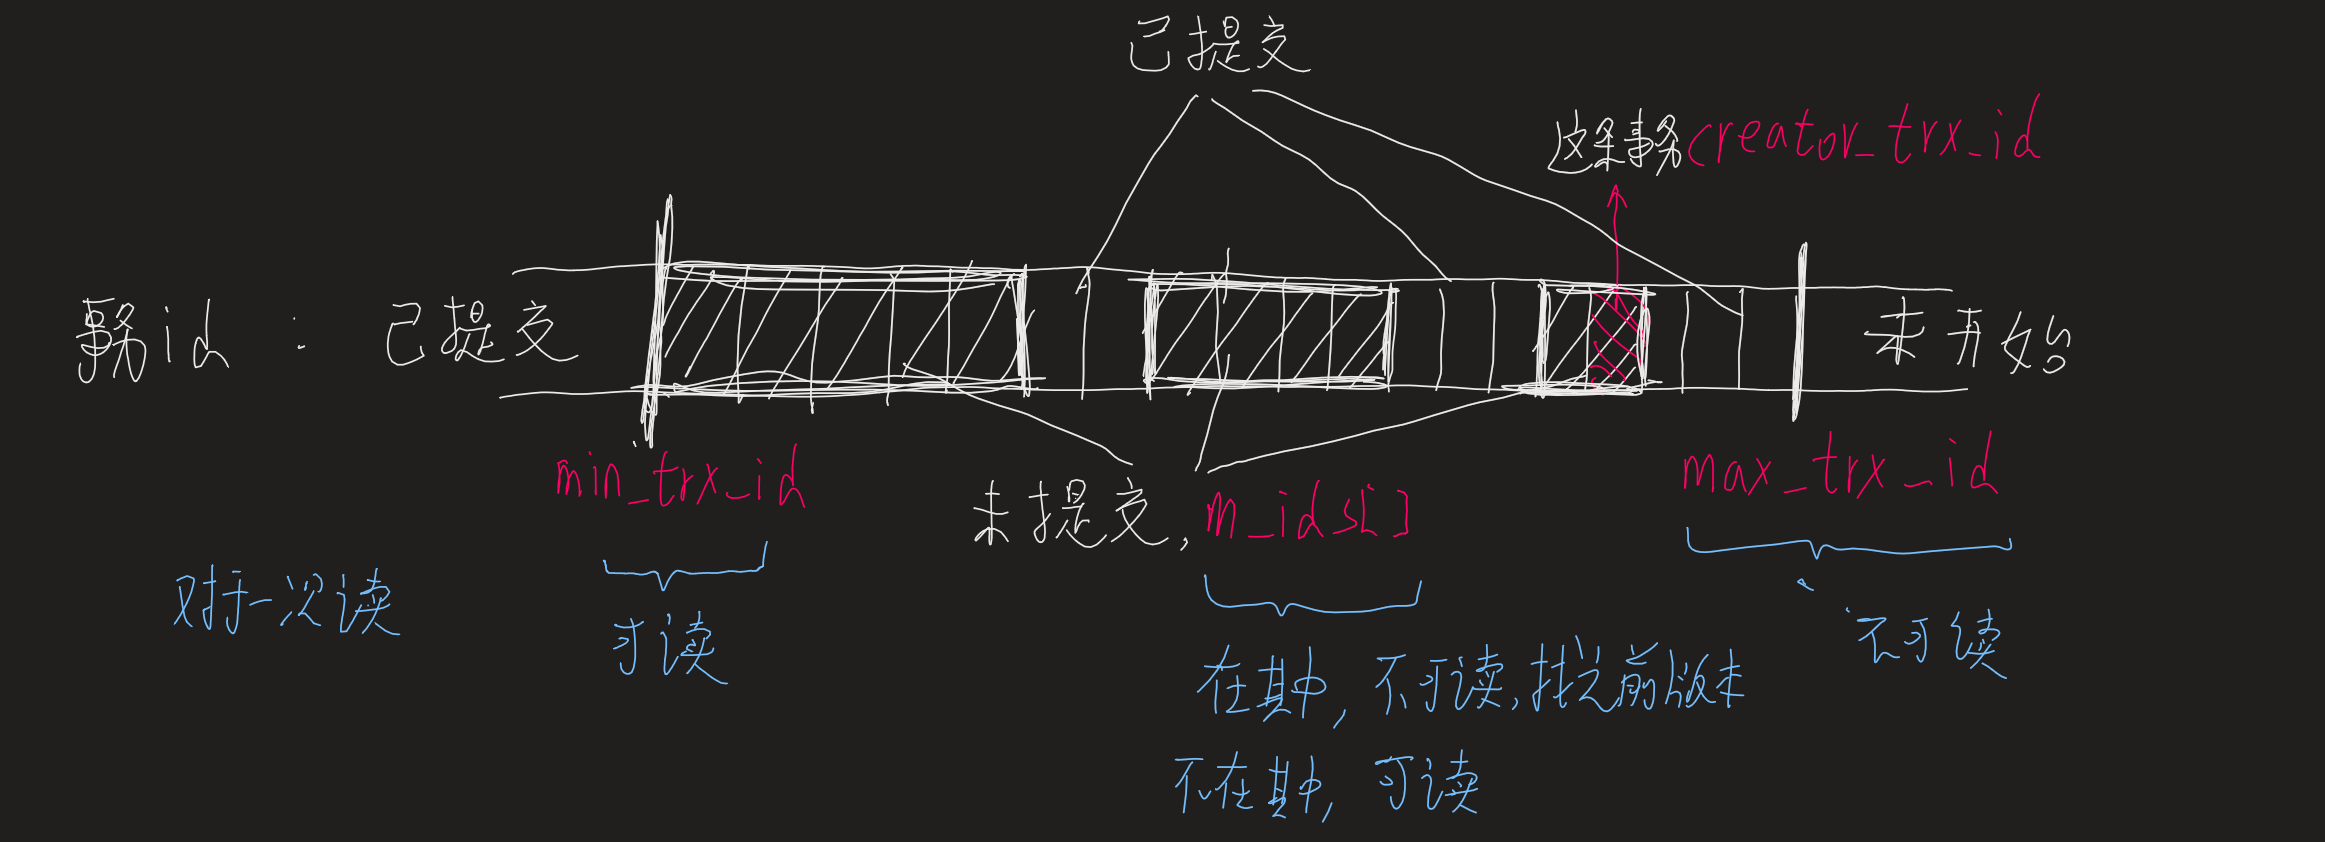 已提交
这条事务creator_trx_id
事务id : 已提交
未开始
min_trx_id
未提交, m_ids[]
max_trx_id
对于一次读
可读
在其中, 不可读, 找之前版本
不在其中, 可读
不可读